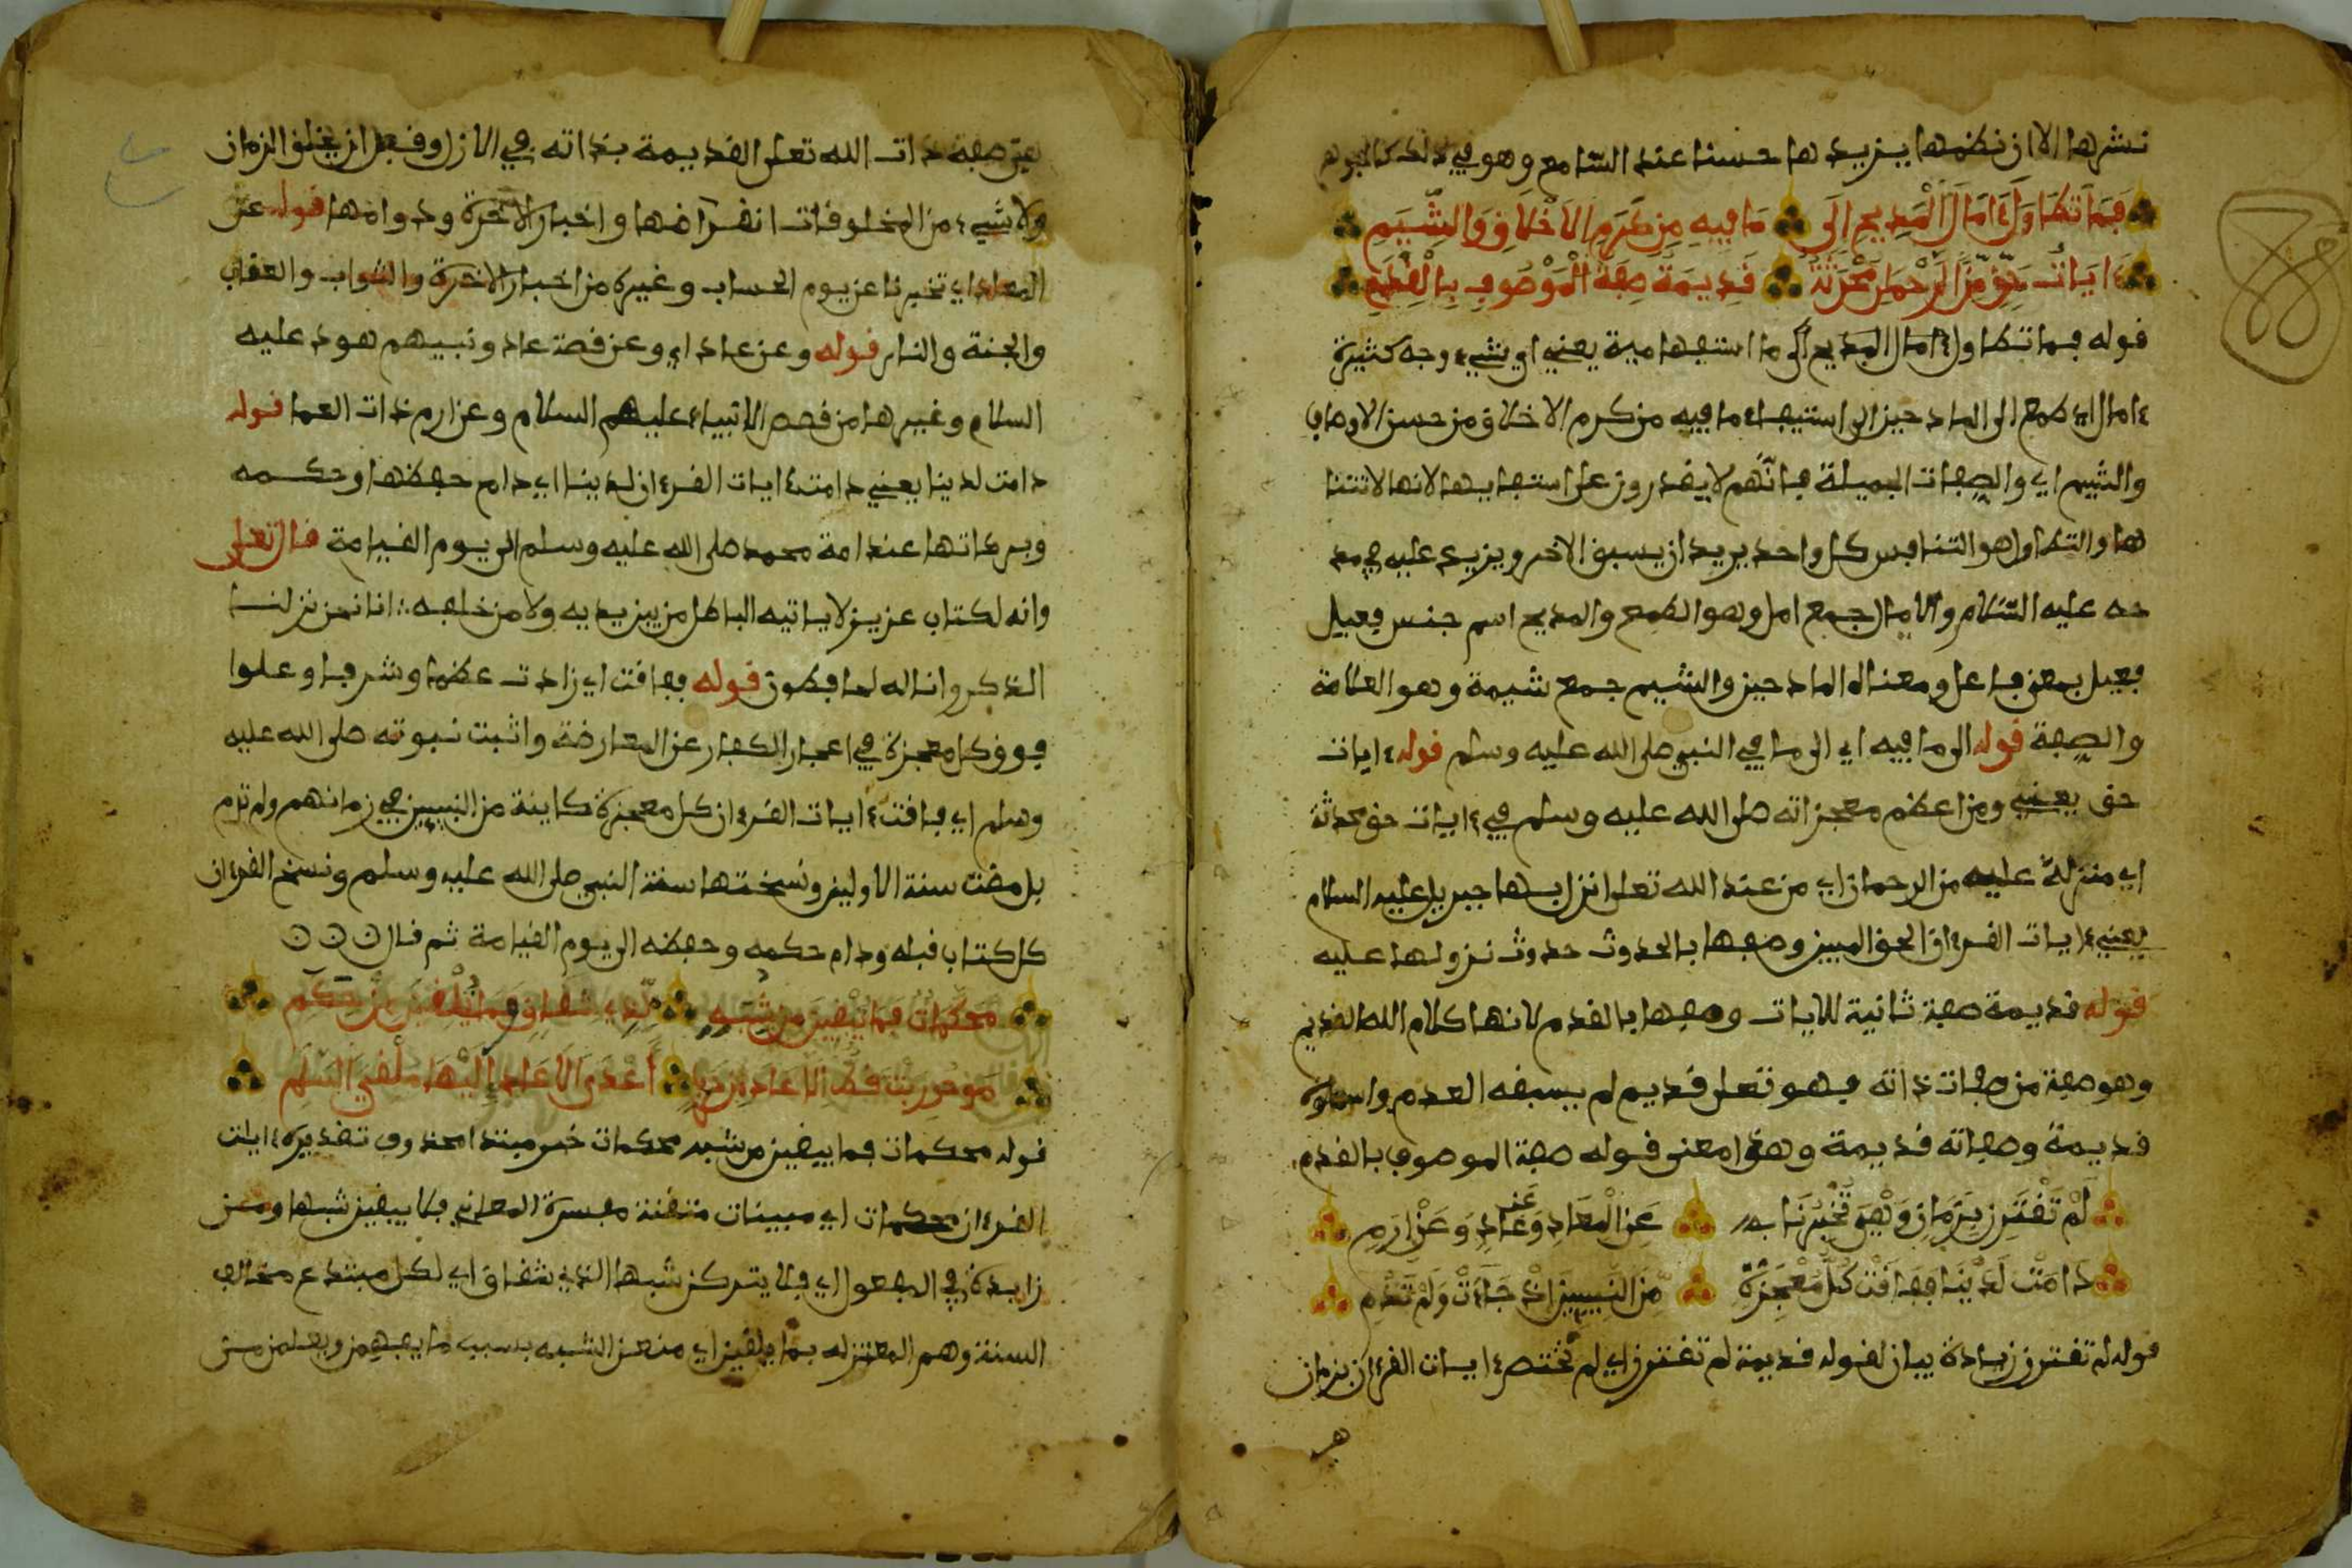 نشرها الا ان نظمها يزيدها حسنا عند السامع وهو في ذلك كالجوهر
فَمَا تَطَاوُلُ ءَامَالِ الْمَدِيحِ إِلَى مَا فِيهِ مِن كَرَمِ الاَخْلَاقِ وَالشِّيَمِ
ءَايَاتُ حَقٍّ مِّنَ الرَّحْمَٰنِ مُحْدَثَةٌ قَدِيمَةٌ صِفَةُ الْمَوْصُوفِ بِالْقِدَمِ
قوله فما تطاول ءامال المديح الى ما استفهامية يعني اي شيء وجه كثيرة
ءامال اي طمع الى المادحين الى استيفاء ما فيه من كرم الاخلاق ومن حسن الاوصاف
والشيم اي والصفات الجميلة فانهم لا يقدرون على استيفايها لانها لا تتنا
ها والتطاول هو التنافس كل واحد يريد ان يسبق الاخر ويزيد عليه في مد
حه عليه السلام والامال جمع امل وهو الطمع والمديح اسم جنس فعيل
فعيل بمعنى فاعل ومعناه المادحين والشيم جمع شيمة وهو العلامة
والصفة قوله الى ما فيه اي الى ما في النبي صلى الله عليه وسلم قوله ءايات
حق يعني ومن اعظم معجزاته صلى الله عليه وسلم في ءايات حق محدثة
اي منزلة عليه من الرحمان اي من عند الله تعلى انزل بها جبريل عليه السلام
يعني ءايات القرءان الحق المبين وصفها بالحدوث حدوث نزولها عليه
قوله قديمة صفة ثانية للايات وصفها بالقدم لانها كلام الله القديم
وهو صفة من صفات ذاته فهو تعلى قديم لم يسبقه العدم واسماؤه
قديمة وصفاته قديمة وهذا معنى قوله صفة الموصوف بالقدم
لَمْ تَقْتَرِن بِزَمَانٍ وَهْيَ تُخْبِرُنَا عَنِ الْمَعَادِ وَعَن عَادٍ وَعَنْ إِرَمِ
دَامَتْ لَدَيْنَا فَفَاقَتْ كُلَّ مُعْجِزَةٍ مِّنَ النَّبِيِيِّنَ إِذْ جَاءَتْ وَلَمْ تَدُمِ
قوله لم تقترن زيادة بيان لقوله قديمة لم تقترن اي لم تختص ءايات القرءان بزمان
هي
هي صفة ذات الله تعلى القديمة بذاته في الازل وقبل ان يخلق الزمان
ولا شيء من المخلوقات انقراضها واخبار الاخرة ودوامها قوله عن
المعاد اي تخبرنا عن يوم الحساب وغيره من اخبار الاخرة والثواب والعقاب
والجنة والنار قوله وعن عاد اي وعن قصة عاد ونبيهم هود عليه
السلام وغيرها من قصص الانبياء عليهم السلام وعن ارم ذات العما قوله
دامت لدينا يعني دامت ءايات القرءان لدينا اي دام حفظها وحكمه
وبركاتها عند امة محمد صلى الله عليه وسلم الى يوم القيامة قال تعلى
وانه لكتاب عزيز لا ياتيه الباطل من بين يديه ولا من خلفه ∴ انا نحن نزلنا
الذكر وانا له لحافظون قوله ففاقت اي زادت عظما وشرفا وعلوا
فوق كل معجزة في اعجاز الكفار عن المعارضة واثبت نبوته صلى الله عليه
وسلم اي فاقت ءايات القرءان كل معجزة كاينة من النبيين في زمانهم ولم تدم
بل مضت سنة الاولين ونسختها سنة النبي صلى الله عليه وسلم ونسخ القرءان
كل كتاب قبله ودام حكمه وحفظه الى يوم القيامة ثم قال
مُحَكَّمَاتٌ فَمَا يُبْقِينَ مِن شُبَهٍ لِّذِي شِقَاقٍ وَمَا يَبْغِينَ مِنْ حَكَمِ
مَا حُورِبَتْ قَطُّ إِلَّا عَادَ مِنْ حَرَبٍ أَعْدَى الاَعَادِي إِلَيْهَا مُلْقِيَ السَّلَمِ
قوله محكمات فما يبقين من شبه محكمات خبر مبتدا محذوف تقديره ءايات
القرءان محكمات اي مبينات متقنة مفسرة المعاني فلا يبقين شبها ومن
زايدة في المفعول اي فلا يتركن شبها لذي شقاق اي لكل مبتدع مخالف
السنة وهم المعتزله بما يبقين اي منعن الشبه بسبب ما يفهمن ويعلمن من